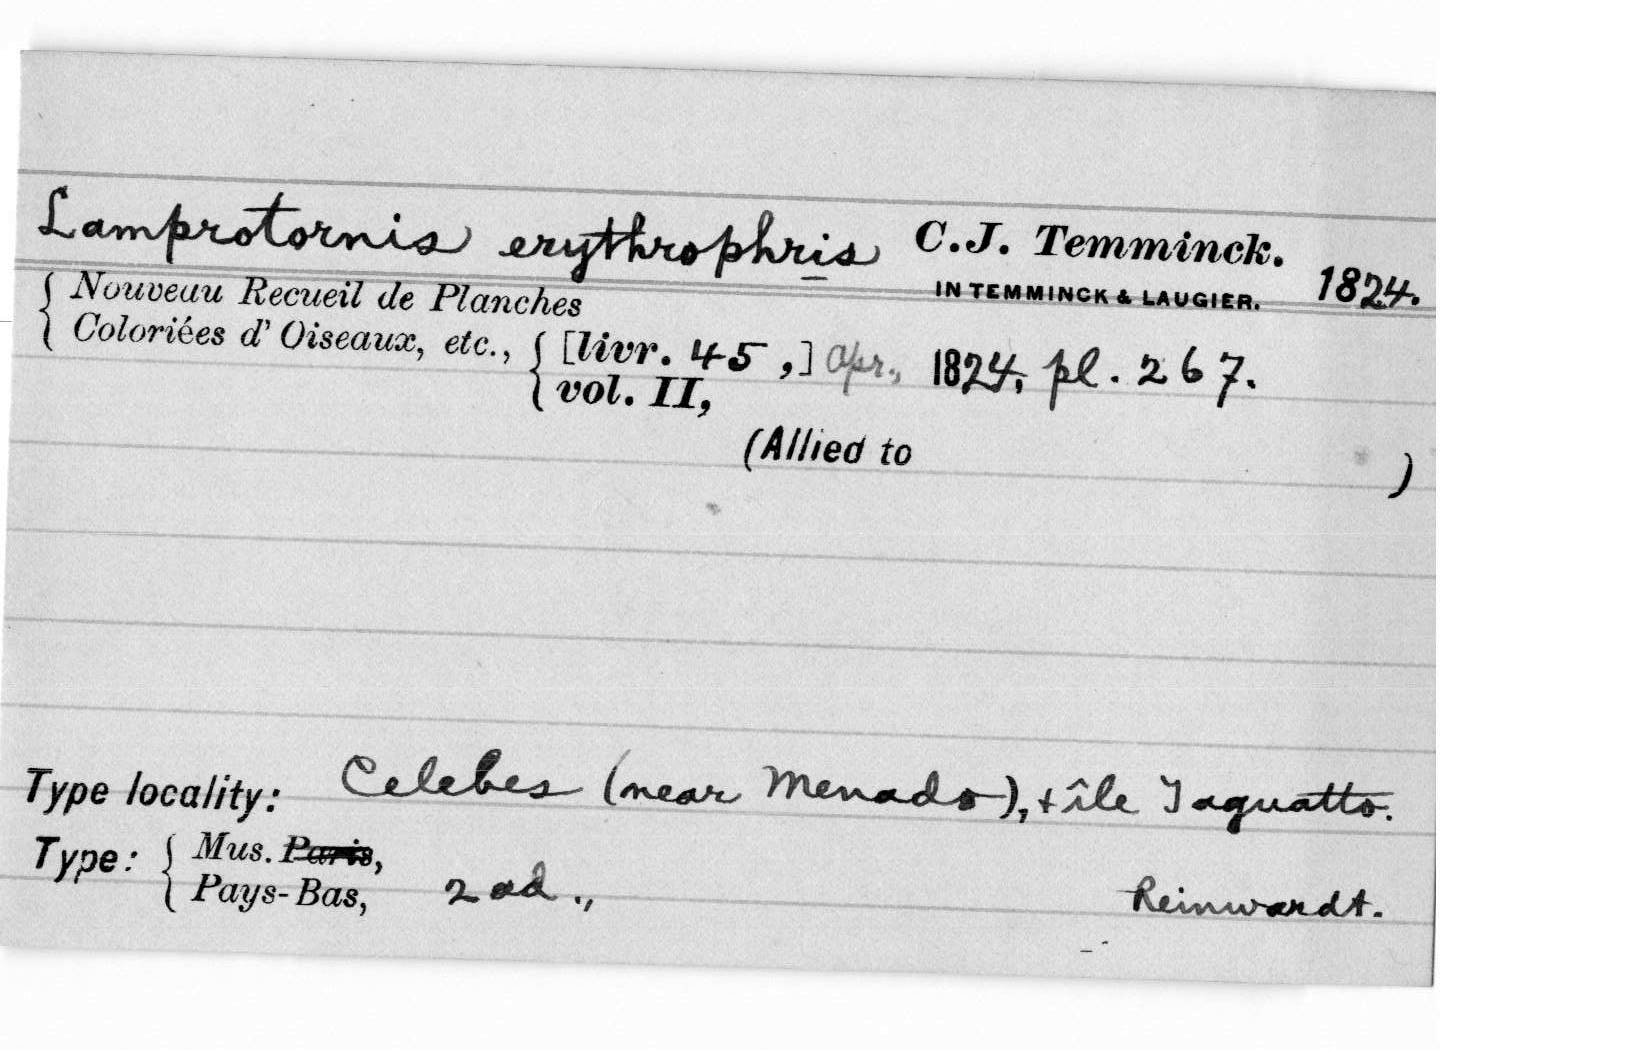 Lamprotornis erythrophris C.J. Temminck.
IN TEMMINCK & LAUGIER. 1824.
{ Nouveau Recueil de Planches
Coloriées d' Oiseaux, etc., { [livr. 45,] Apr., 1824, pl. 267.
vol. II,
(Allied to )
Type locality: Celebes (near Menado), + île Taguatto.
Type: { Mus. Paris,
Pays-Bas, 2 ad., Reinwardt.